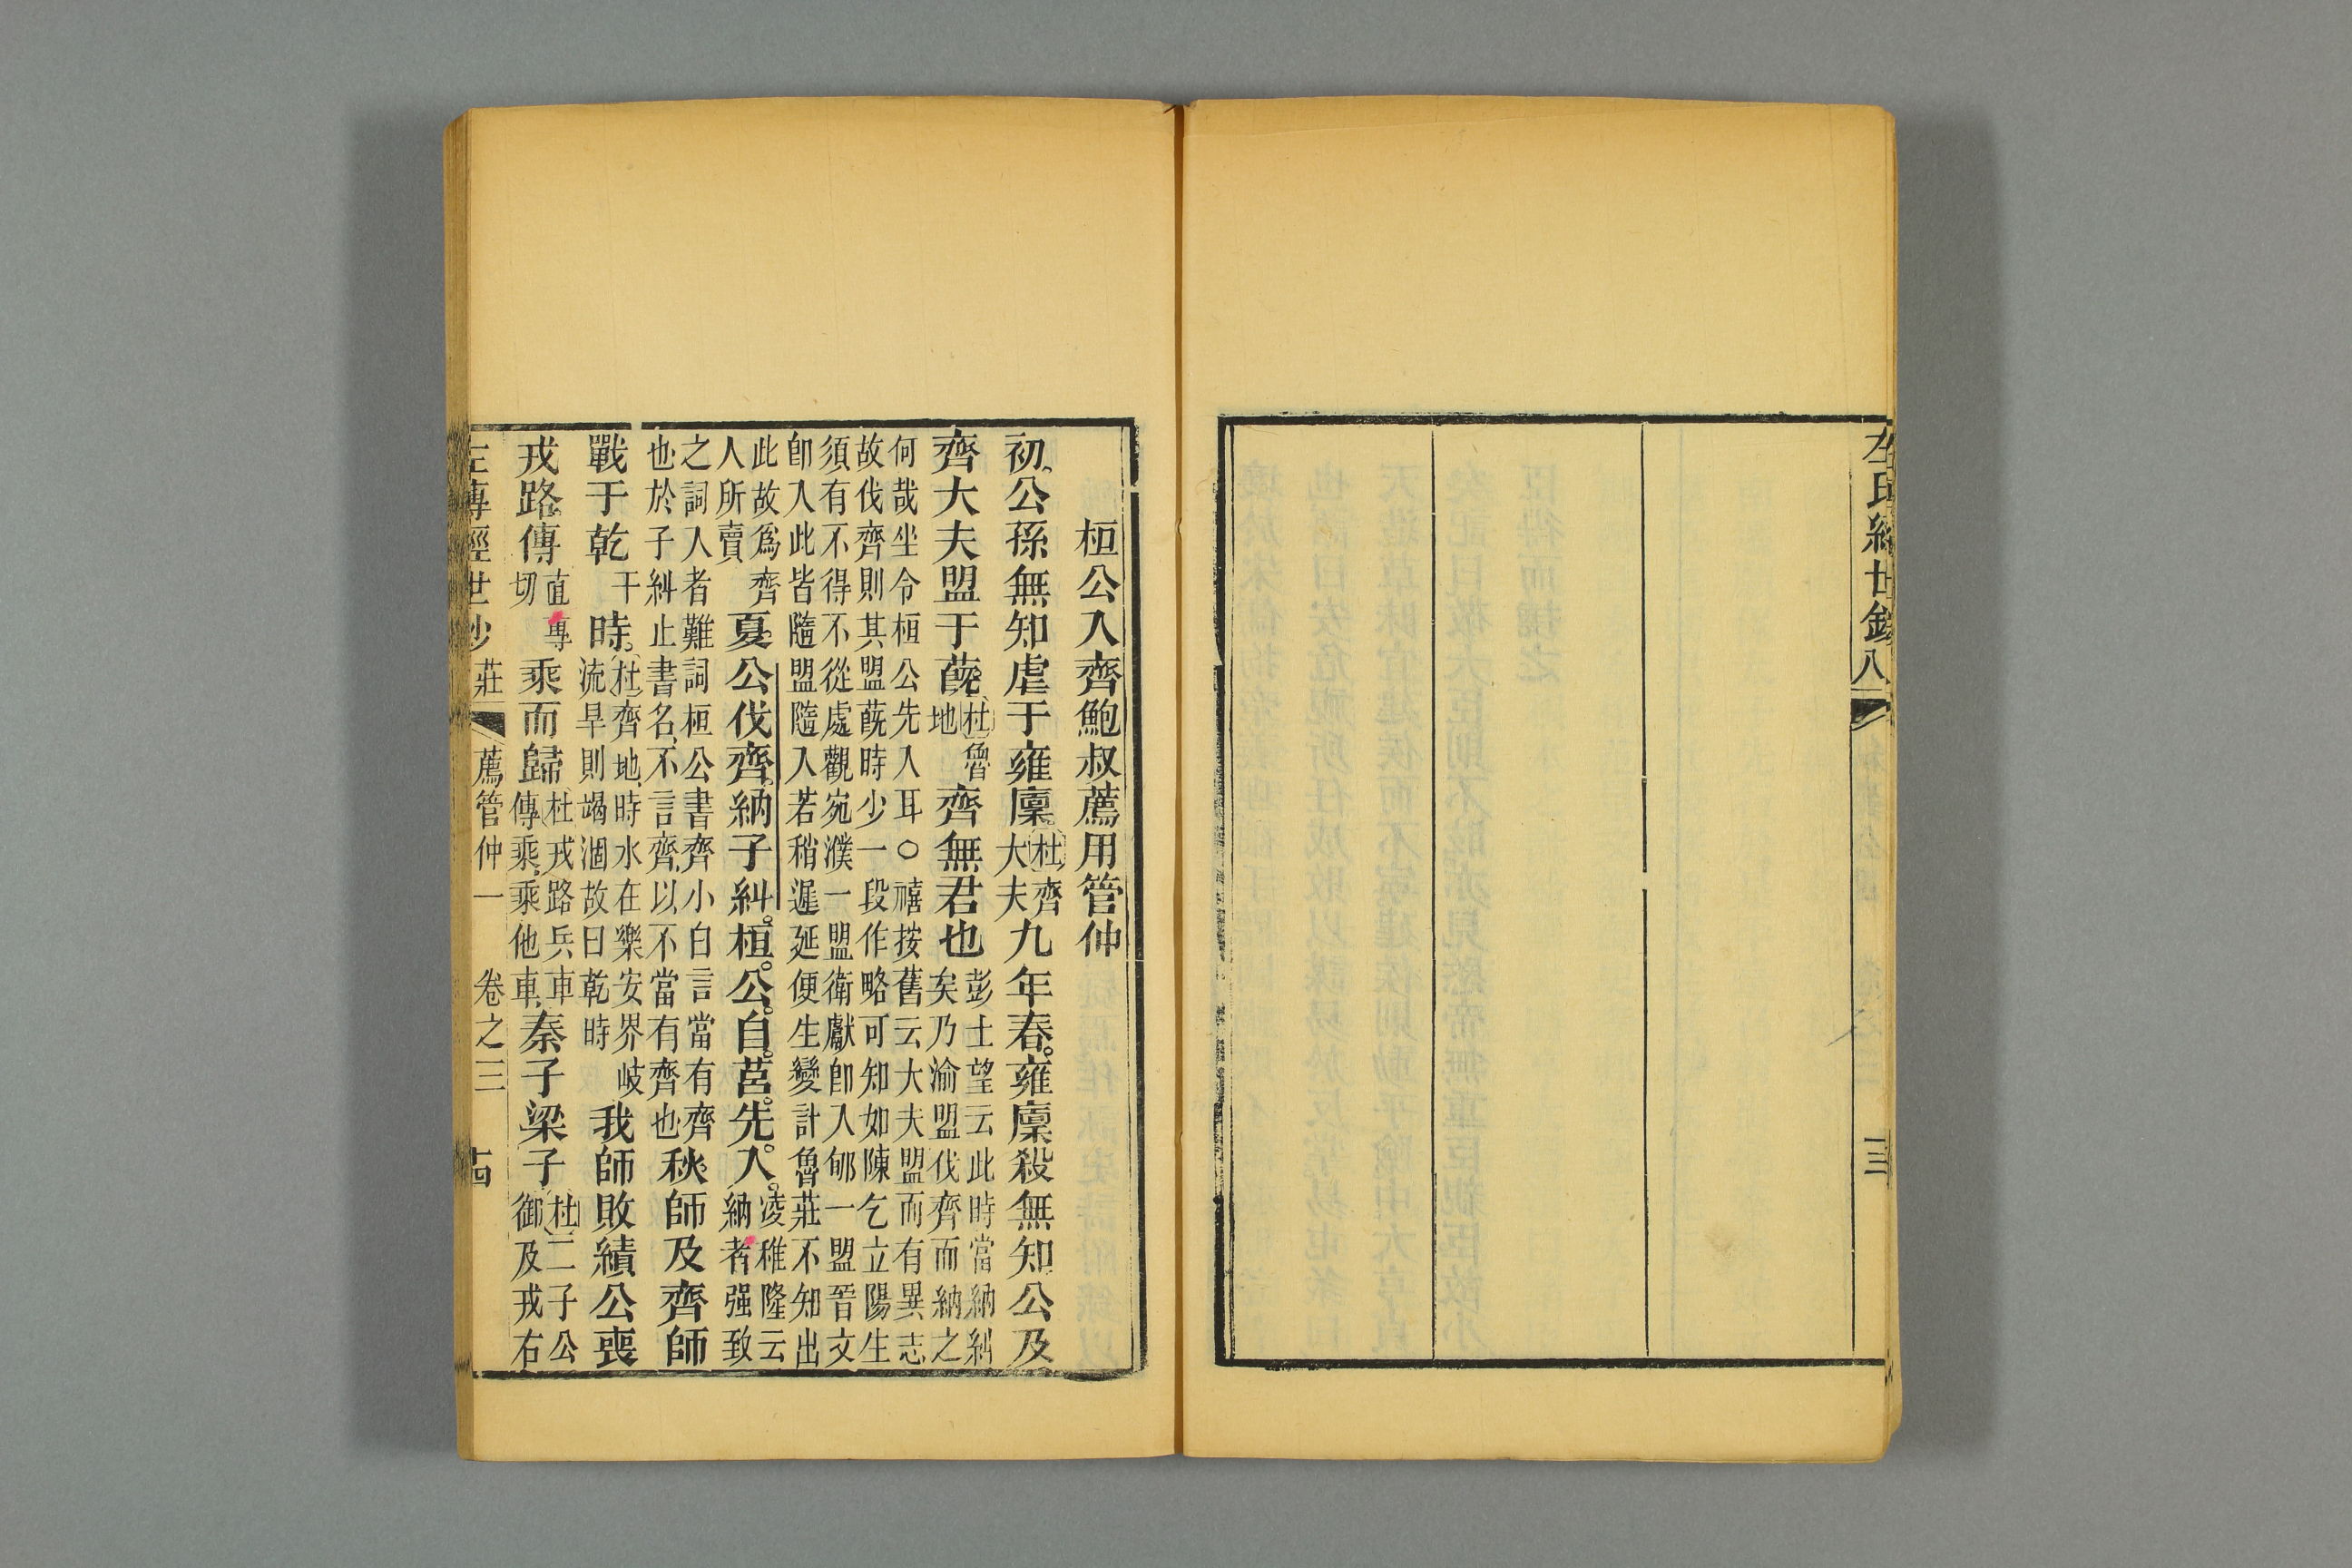 左氏經世鈔八
桓公入齊鮑叔薦用管仲
初公孫無知虐于雍廩杜齊大夫九年春雍廩殺無知公及
齊大夫盟于蔇杜魯地齊無君也彭士望云此時當納糾矣乃渝盟伐齊而納之
何哉坐令桓公先入耳○禧按舊云大夫盟而有異志
故伐齊則其盟蔇時少一段作略可知如陳乞立陽生
須有不得不從處觀宛濮一盟衛獻卽入郇一盟晉文
卽入此皆隨盟隨入若稍遲延便生變計魯莊不知出
此故爲齊人所賣夏公伐齊納子糾桓公自莒先入凌稚隆云納者强致
之詞人者難詞桓公書齊小白言當有齊也於子糾止書名不言齊以不當有齊也秋師及齊師
戰于乾干時杜齊地時水在樂安界岐流旱則竭涸故曰乾時我師敗績公喪
戎路傳直專切乘而歸杜戎路兵車傳乘乘他車秦子梁子杜二子公御及戎右
左傳經世鈔 莊 薦管仲一 卷之三 十四